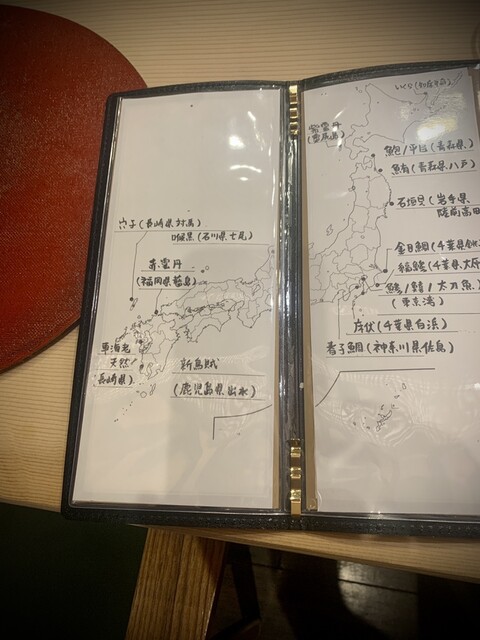 穴子(長崎県対馬)
喉黒(石川県七尾)
赤雲丹
(福岡県藍島)
車海老
天然!
(長崎県)
新烏賊
(鹿児島県出水)
いくら(
紫雲丹
鮑/平目(青森県、)
鯖(青森県八戸)
石垣貝(岩手県
陸前高田
金目鯛(千葉県銚
(千葉県大原
鱚/鯖/太刀魚
(東京湾)
(千葉県白浜)
春子鯛(神奈川県佐島)